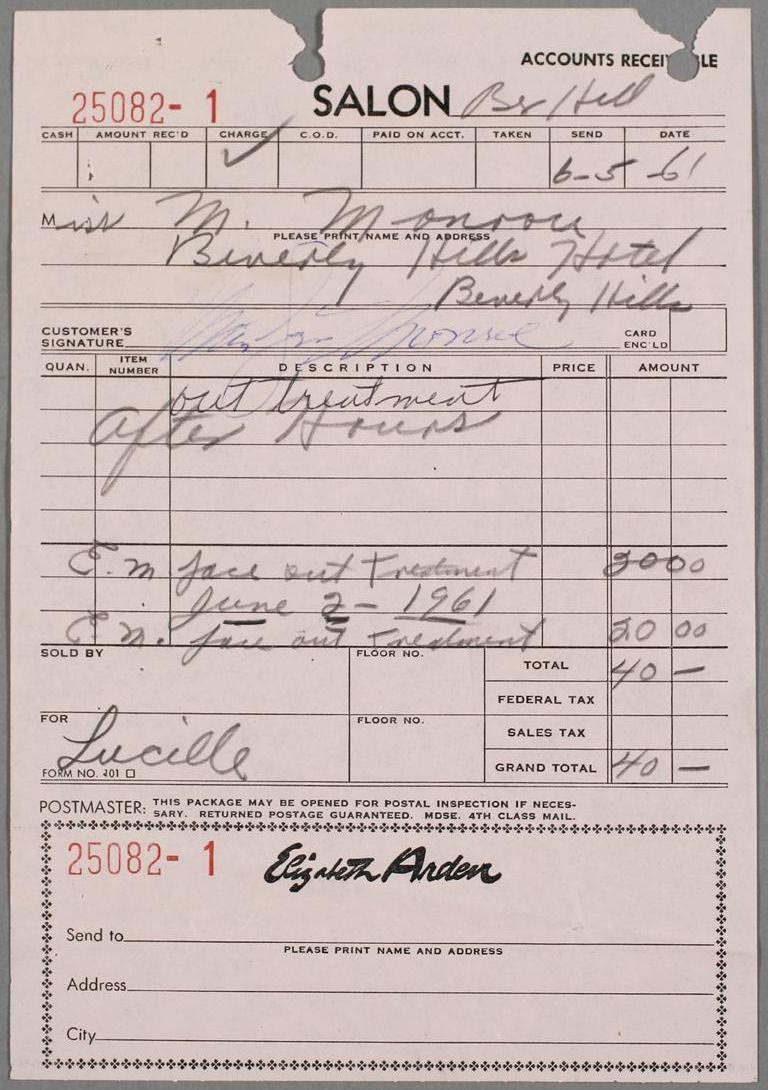 ACCOUNTS RECEI LE
25082- 1 SALON Bev Hill
CASH AMOUNT REC'D CHARGE C.O.D. PAID ON ACCT. TAKEN SEND DATE
6-5-61
Miss M. Monroe
PLEASE PRINT NAME AND ADDRESS
Beverly Hills Hotel
Beverly Hills
CUSTOMER'S SIGNATURE Marilyn Monroe CARD ENC'LD
QUAN. ITEM NUMBER DESCRIPTION PRICE AMOUNT
out treatment
After Hours
E.M. face out Treatment 20 00
June 2 - 1961
E.M. face out Treatment 20 00
SOLD BY FLOOR NO. TOTAL 40 -
FEDERAL TAX
FOR FLOOR NO. SALES TAX
Lucille
FORM NO. 401 GRAND TOTAL 40 -
POSTMASTER: THIS PACKAGE MAY BE OPENED FOR POSTAL INSPECTION IF NECES-
SARY. RETURNED POSTAGE GUARANTEED. MDSE. 4TH CLASS MAIL.
25082- 1 Elizabeth Arden
Send to
PLEASE PRINT NAME AND ADDRESS
Address
City